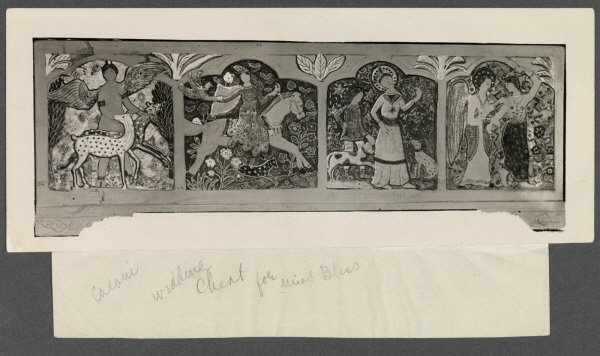 Cassoni
wedding Chest for Miss Bliss